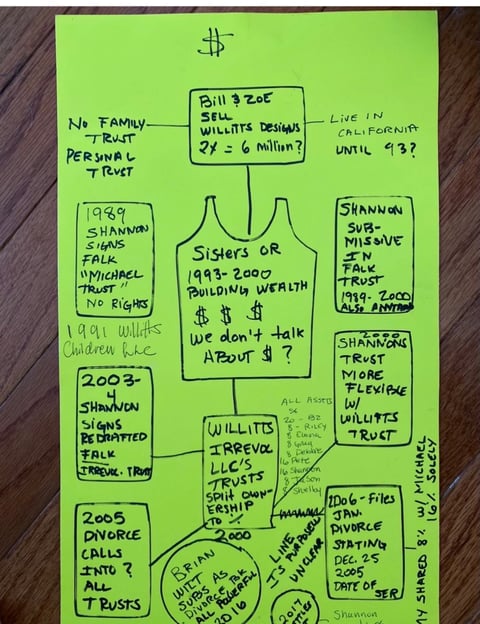 $
Bill $ ZOE
SELL
WILLITTS DESIGNS
2X = 6 million?
NO FAMILY
TRUST
PERSONAL
TRUST
LIVE IN
CALIFORNIA
UNTIL 93?
1989
SHANNON
SIGNS
FALK
"MICHAEL
TRUST"
NO RIGHTS
1991 Willitts
Children
Sisters OR
1993-2000
BUILDING WEALTH
$ $ $
We don't talk
ABOUT $ ?
SHANNON
SUB-
MISSIVE
IN
FALK
TRUST
1989-2000
ALSO
2000
SHANNONS
TRUST
MORE
FLEXIBLE
W/
WILLITTS
TRUST
2003-
4
SHANNON
SIGNS
REDRAFTED
FALK
IRREVOC. TRUST
WILLITTS
IRREVOC
LLC'S
TRUSTS
SPLIT OWN-
ERSHIP
TO %
2000
ALL ASSETS
20 - BZ
8 - RILEY
8
8
8 Debbie
16 Pete
16 Shannon
8 JASON
8 Shelby
2005
DIVORCE
CALLS
INTO ?
ALL
TRUSTS
LINE
IS PURPOSELY
UNCLEAR
2006 - Files
JAN.
DIVORCE
STATING
DEC. 25
2005
DATE OF
SER
MY SHARED 8% W/ MICHAEL
16% SOLELY
BRIAN
WITT
SUBS AS
DIVORCE
ALL POWERFUL
2016
2017
Shannon